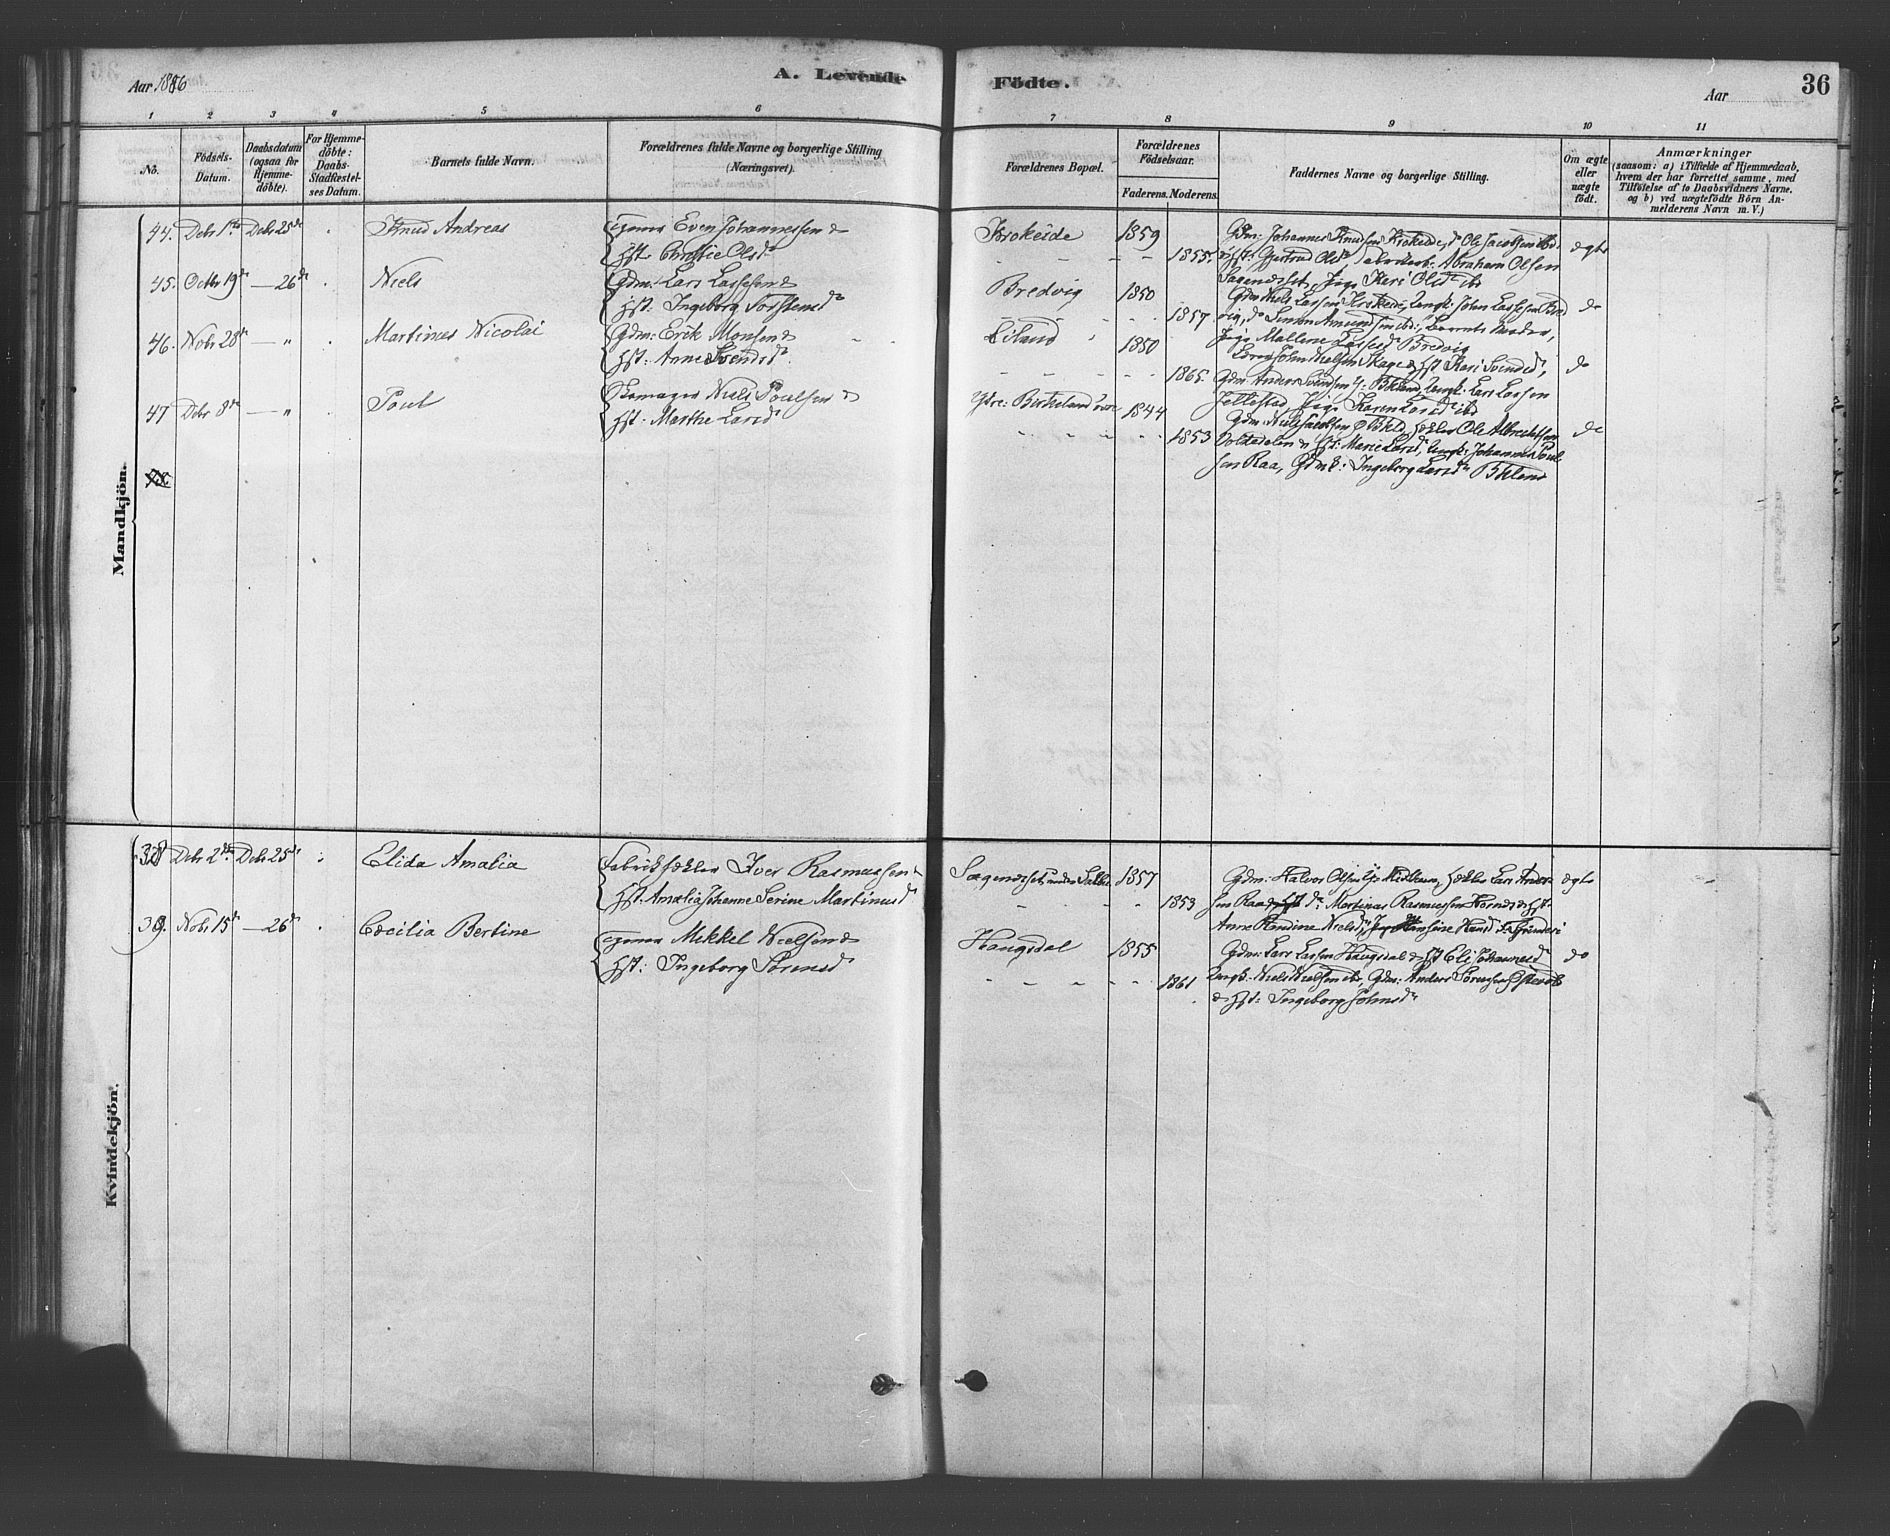 Aar 1886
A. Levende Födte.
Aar
36
1 2 3 4 5 6 7 8 9 10 11
No.
Födsels-
Datum.
Daabsdatum
(ogsaa for
Hjemme-
döbte).
For Hjemme-
döbte:
Daabs-
Stadfæstel-
ses Datum.
Barnets fulde Navn.
Forældrenes fulde Navne og borgerlige Stilling
(Næringsvei).
Forældrenes Bopæl.
Forældrenes
Födselsaar.
Faderens. Moderens.
Faddernes Navne og borgerlige Stilling.
Om ægte
eller
uægte
födt.
Anmærkninger
(saasom: a) i Tilfælde af Hjemmedaab,
hvem der har forrettet samme, med
Tilföielse af to Daabsvidners Navne,
og b) ved uægtefödte Börn An-
melderens Navn m. V.)
Mandkjön.
44. Debr 1ste Debr 25de Knud Andreas
Even Johannessen &
Hst. Christie Olsdr
Krokeide 1859
1855.
Gdm: Johannes Knudsen Krokeide, Ole Jacobsen ibd.
Hst: Gjertrud Olsdr Fabrikarb. Abraham Olsen
Sagenæset, Pige Kari Olsdr ibd
ægte
45. Octbr 19de — 26de Niels
Gdm: Lars Lassesen &
Hst. Ingeborg Torstensdr
Bredvig 1850
1857
Gdm Niels Lassen Krokeide, Ungk: John Lassesen Bred
vig, do Simon Amundsen ibd., Barnets Moder,
Pige Mallene Lassesdr Bredvig
do
46. Nobr 28de — " Martinus Nicolai
Gdm: Erik Monsen &
Hst. Anne Svendsdr
Eiland 1850
1865.
John Nielsen Skage & Hst Kari Svendsdr,
Gdm: Anders Svendsen Y. Bkland, Ungk. Lars Larsen
Jellestad Pige Karen Larsdr ibd
do
47 Debr 8de — " Poul
Skomager Niels Poulsen &
Hst. Marthe Larsdr
Ytre Birkeland 1844
1853
Gdm. Niels Jacobsen Ø Bkld, Ole Albrichtsen
Dolvedalen & Hst: Marie Larsdr, Ungk: Johannes Poul
sen Raa, Gdmk: Ingeborg Larsdr Bkland
do
Kvindekjön.
38 Debr 2den Debr 25de Elida Amalia
Fabriksækler Iver Rasmussen &
Hst. Amalia Johanne Serine Martinusdr
Sagenæset, under 1857
1853
Gdm: Halvor Olsen Lars Ander
sen Raa Martinus Rasmussen & Hst.
Anne Nielsdr,
ægte
39. Nobr 15de — 26de Cecilia Bertine
Mikkel Nielsen &
Hst: Ingeborg Sörensdr
Haugsdal 1855
1861
Gdm: Lars Larsen Haugsdal & Hst Eli Johannesdr
Ungk. Niels Nielsen ibd, Gdm: Anders Sörensen
& Hst: Ingeborg Johnsdr
do